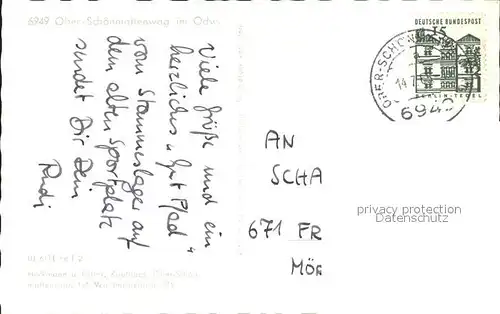 6949 Ober-Schönmattenwag im Odw.
Viele Grüße und ein
herzliches "Gut Pfad"
vom Stammeslager auf
dem alten Sportplatz
sendet Dir Dein
Rudi
DEUTSCHE BUNDESPOST
15
BERLIN-TEGEL
OBER-SCHÖNMATT
14.7.
6949
AN
SCHA
671 FR
MÖR
privacy protection
Datenschutz